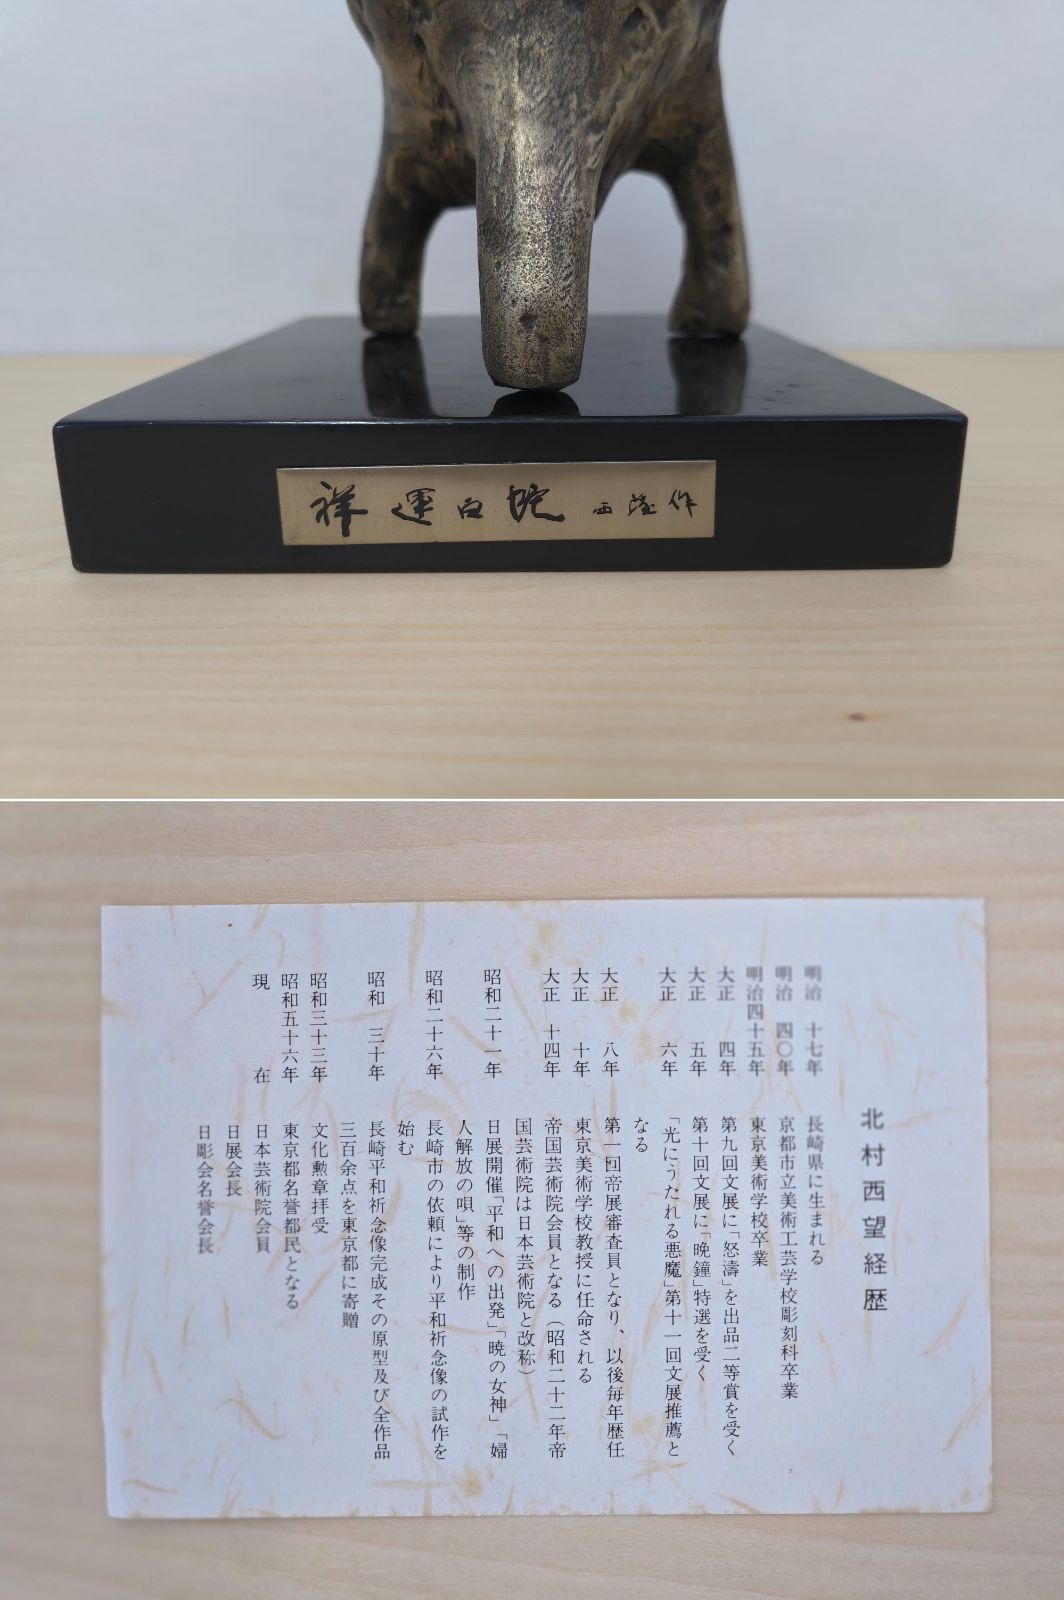 祥運白蛇 西望作
北村西望経歴
明治 十七年 長崎県に生まれる
明治 四〇年 京都市立美術工芸学校彫刻科卒業
明治四十五年 東京美術学校卒業
大正 四年 第九回文展に「怒濤」を出品二等賞を受く
大正 五年 第十回文展に「晩鐘」特選を受く
大正 六年 「光にうたれる悪魔」第十一回文展推薦と
なる
大正 八年 第一回帝展審査員となり、以後毎年歴任
大正 十年 東京美術学校教授に任命される
大正 十四年 帝国芸術院会員となる（昭和二十二年帝
国芸術院は日本芸術院と改称）
昭和二十一年 日展開催「平和への出発」「暁の女神」「婦
人解放の唄」等の制作
昭和二十六年 長崎市の依頼により平和祈念像の試作を
始む
昭和 三十年 長崎平和祈念像完成その原型及び全作品
三百余点を東京都に寄贈
昭和三十三年 文化勲章拝受
昭和五十六年 東京都名誉都民となる
現 在 日本芸術院会員
日展会長
日彫会名誉会長